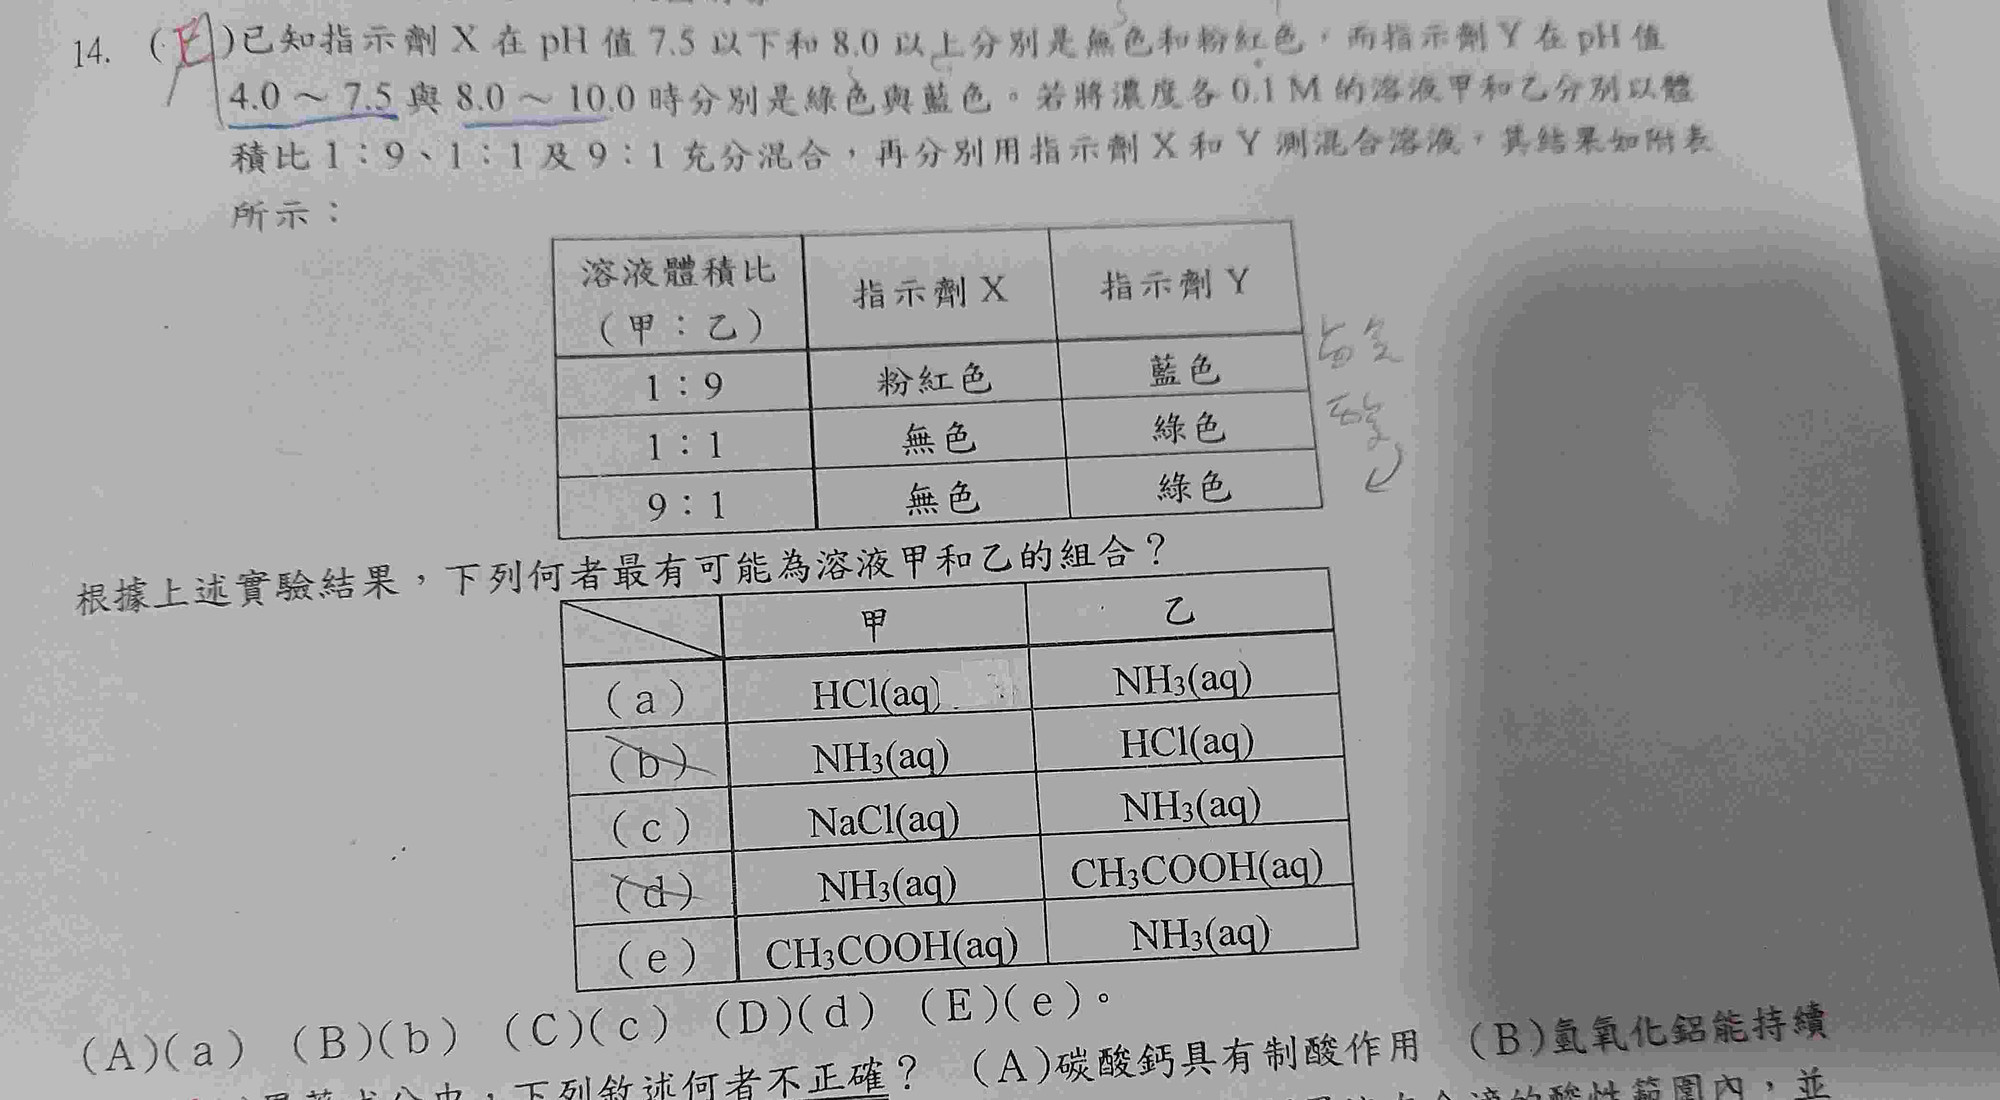 14. (E)已知指示劑 X 在 pH 值 7.5 以下和 8.0 以上分別是無色和粉紅色，而指示劑 Y 在 pH 值
4.0 ～ 7.5 與 8.0 ～ 10.0 時分別是綠色與藍色。若將濃度各 0.1 M 的溶液甲和乙分別以體
積比 1：9、1：1 及 9：1 充分混合，再分別用指示劑 X 和 Y 測混合溶液，其結果如附表
所示：
溶液體積比（甲：乙） 指示劑 X 指示劑 Y
1：9 粉紅色 藍色
1：1 無色 綠色
9：1 無色 綠色
根據上述實驗結果，下列何者最有可能為溶液甲和乙的組合？
甲 乙
（a） HCl(aq) NH₃(aq)
（b） NH₃(aq) HCl(aq)
（c） NaCl(aq) NH₃(aq)
（d） NH₃(aq) CH₃COOH(aq)
（e） CH₃COOH(aq) NH₃(aq)
(A)(a) (B)(b) (C)(c) (D)(d) (E)(e)。
下列敘述何者不正確？ (A)碳酸鈣具有制酸作用 (B)氫氧化鋁能持續
的酸性範圍內，並